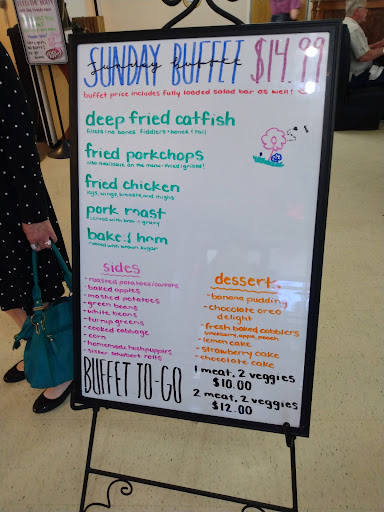 SUNDAY BUFFET $14.99
Sunday buffet
buffet price includes fully loaded salad bar as well!
deep fried catfish
fillets = no bones fiddlers = bones & tail
fried porkchops
also available on the menu = fried / grilled!
fried chicken
legs, wings, breasts, and thighs
pork roast
served with gravy
baked ham
brown sugar
sides
- roasted potatoes/carrots
- baked apples
- mashed potatoes
- green beans
- white beans
- turnip greens
- cooked cabbage
- corn
- homemade hushpuppies
- sister schubert rolls
desserts
- banana pudding
- chocolate oreo
delight
- fresh baked cobblers
blackberry, apple, peach
- lemon cake
- strawberry cake
- chocolate cake
BUFFET TO-GO
1 meat, 2 veggies
$10.00
2 meat, 2 veggies
$12.00